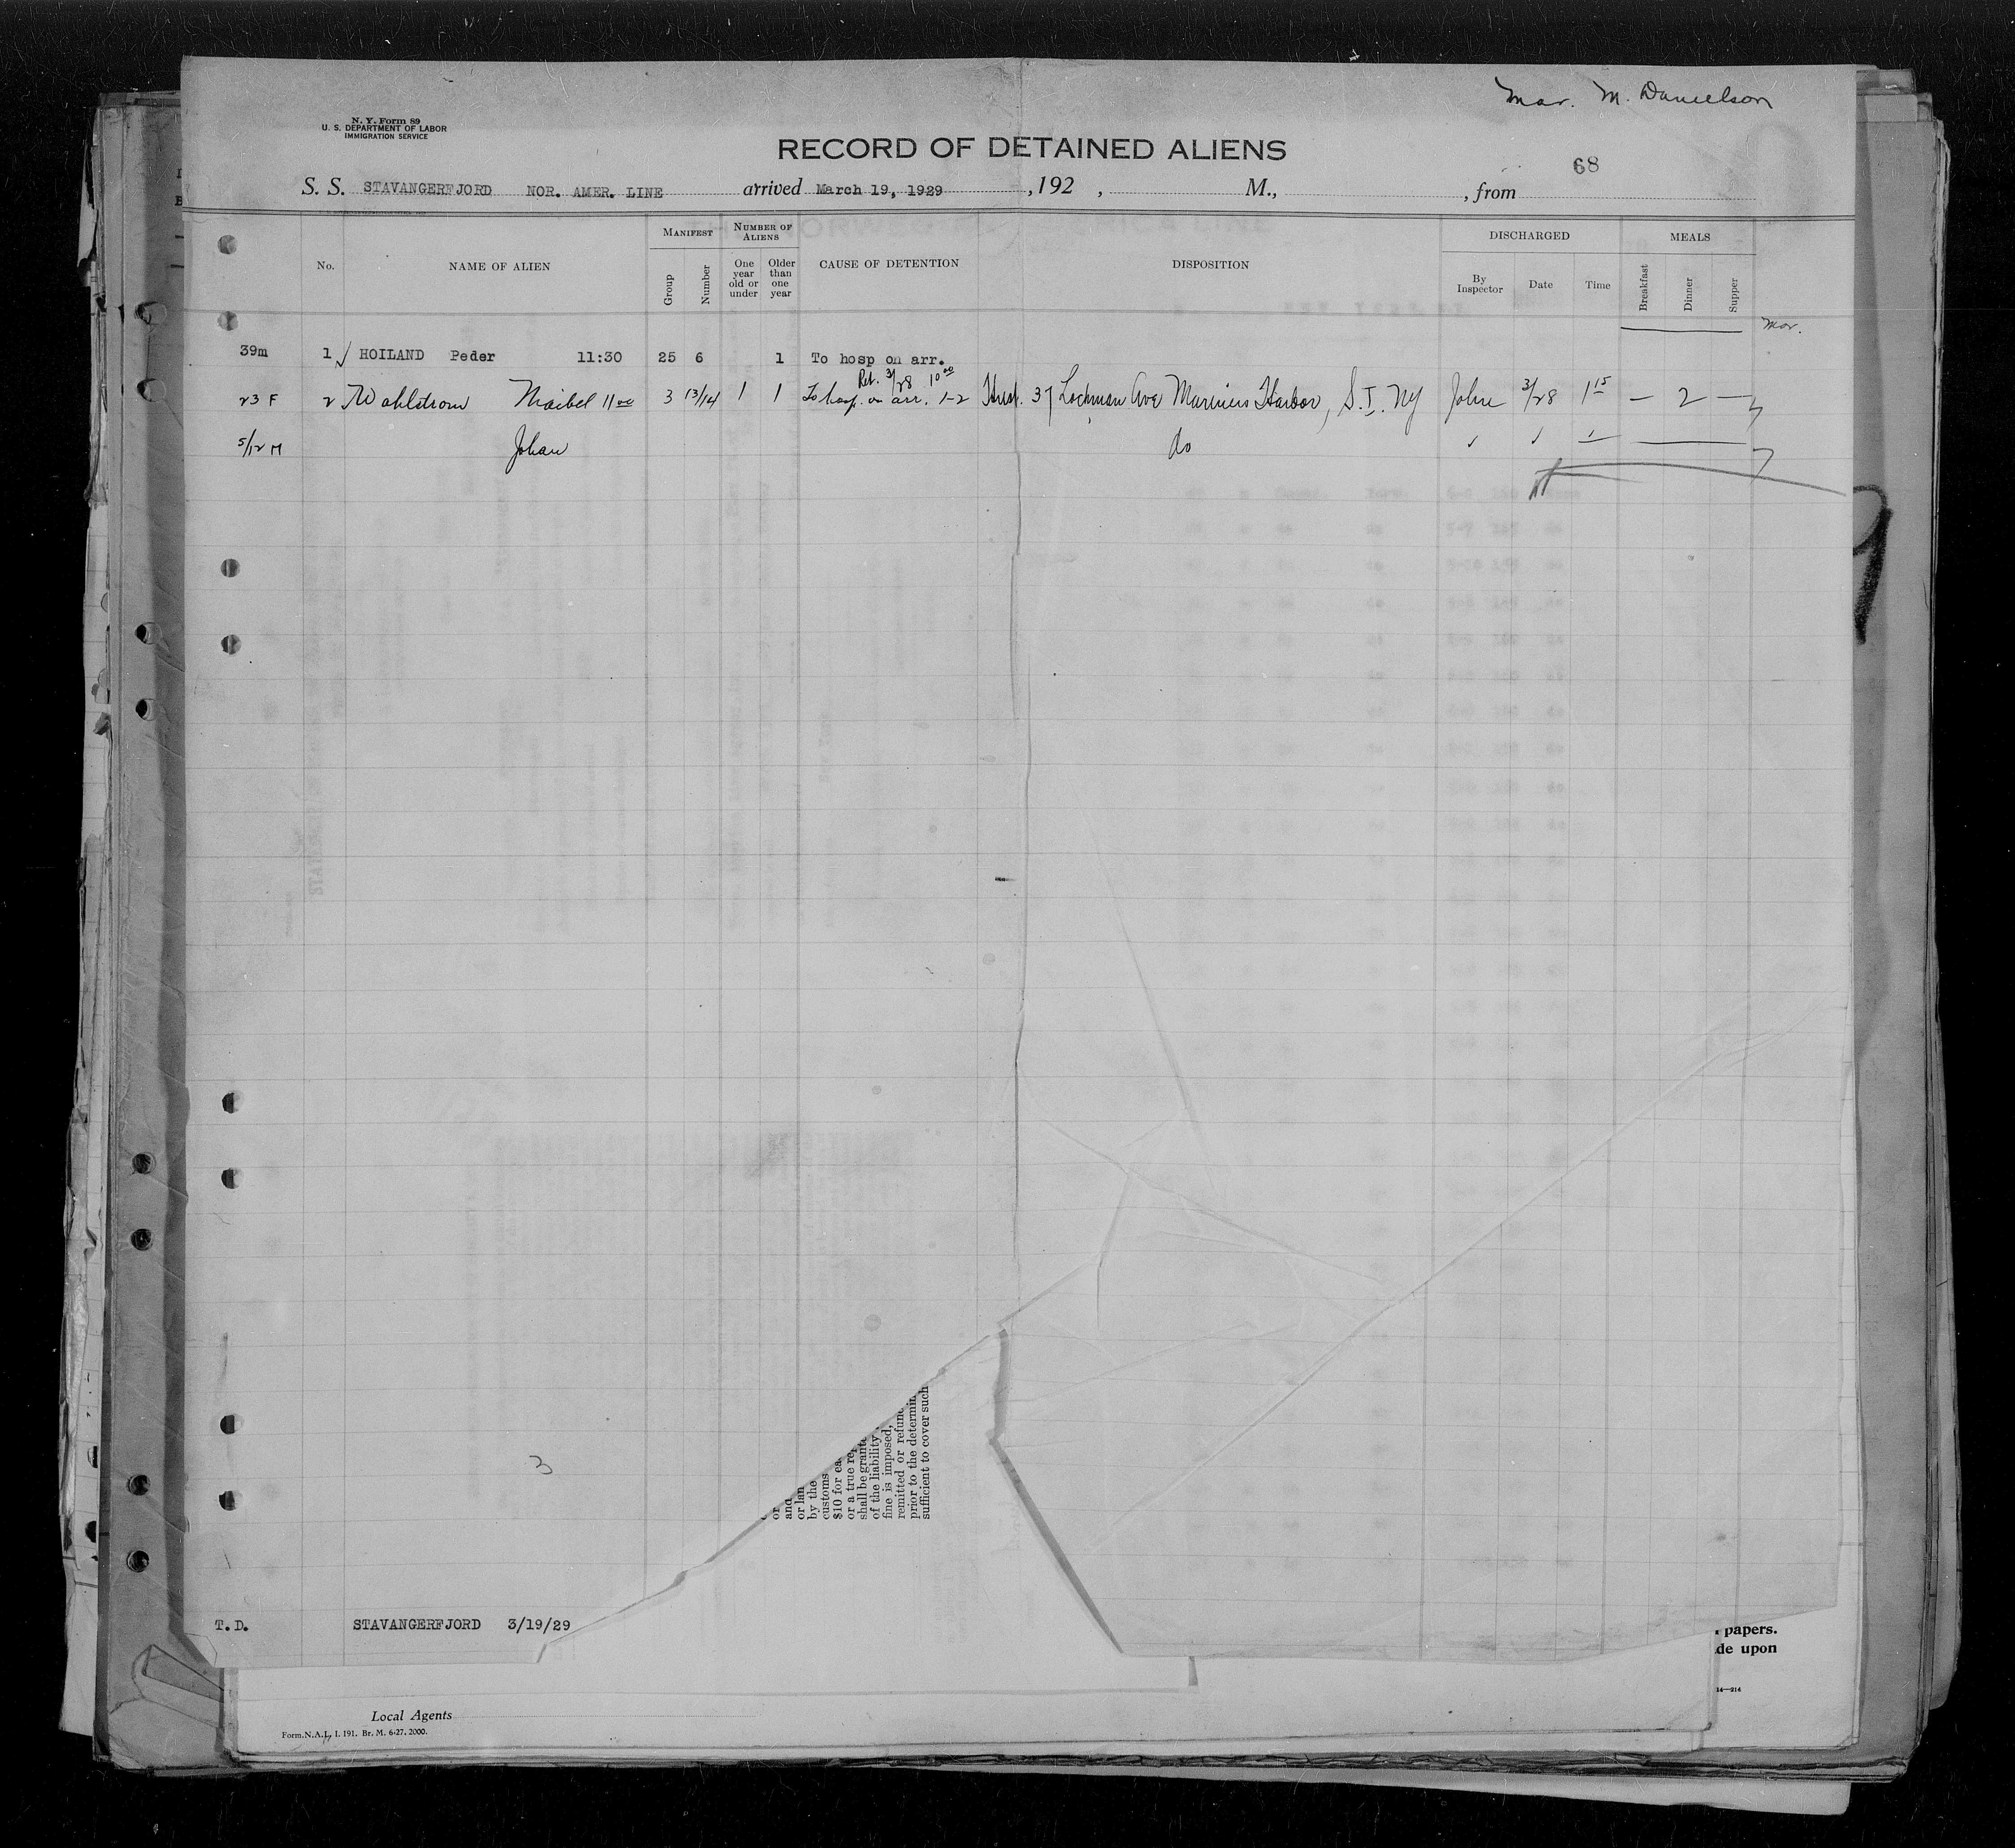 Mar. M. Danielson
N. Y. Form 89
U. S. DEPARTMENT OF LABOR
IMMIGRATION SERVICE
RECORD OF DETAINED ALIENS
68
S. S. STAVANGERFJORD NOR. AMER. LINE arrived March 19, 1929 , 192 , M., , from
No. NAME OF ALIEN MANIFEST Group Number NUMBER OF ALIENS One year old or under Older than one year CAUSE OF DETENTION DISPOSITION DISCHARGED By Inspector Date Time MEALS Breakfast Dinner Supper
Mar.
39m 1 HOILAND Peder 11:30 25 6 1 To hosp on arr.
Ret. 3/28 10 00
23 F 2 Wahlstrom Maibel 11 00 3 13/14 1 1 To hosp. on arr. 1-2 Husb. 37 Lockman Ave Mariners Harbor, S. I. NY John 3/28 1 15 — 2 —
5/12 M Johan do
3
or
and
or lan
by the
customs
$10 for ea
or a true re
shall be grante
of the liability
fine is imposed,
remitted or refund
prior to the determin
sufficient to cover such
T.D. STAVANGERFJORD 3/19/29
papers.
de upon
14—214
Local Agents
Form.N.A.L. 1. 191. Br. M. 6-27. 2000.